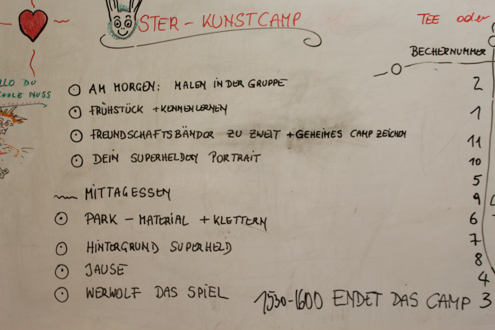 STER - KUNSTCAMP
TEE oder
BECHERNUMMER
LLO DU
OOLE NUSS
AM MORGEN: MALEN IN DER GRUPPE
2
FRÜHSTÜCK + KENNENLERNEN
1
FREUNDSCHAFTSBÄNDOR ZU ZWEIT + GEHEIMES CAMP ZEICHEN
11
DEIN SUPERHELDEN PORTRAIT
10
5
MITTAGESSEN
9
PARK - MATERIAL + KLETTERN
6
7
HINTERGRUND SUPERHELD
8
JAUSE
4
WERWOLF DAS SPIEL
1530-1600 ENDET DAS CAMP
3